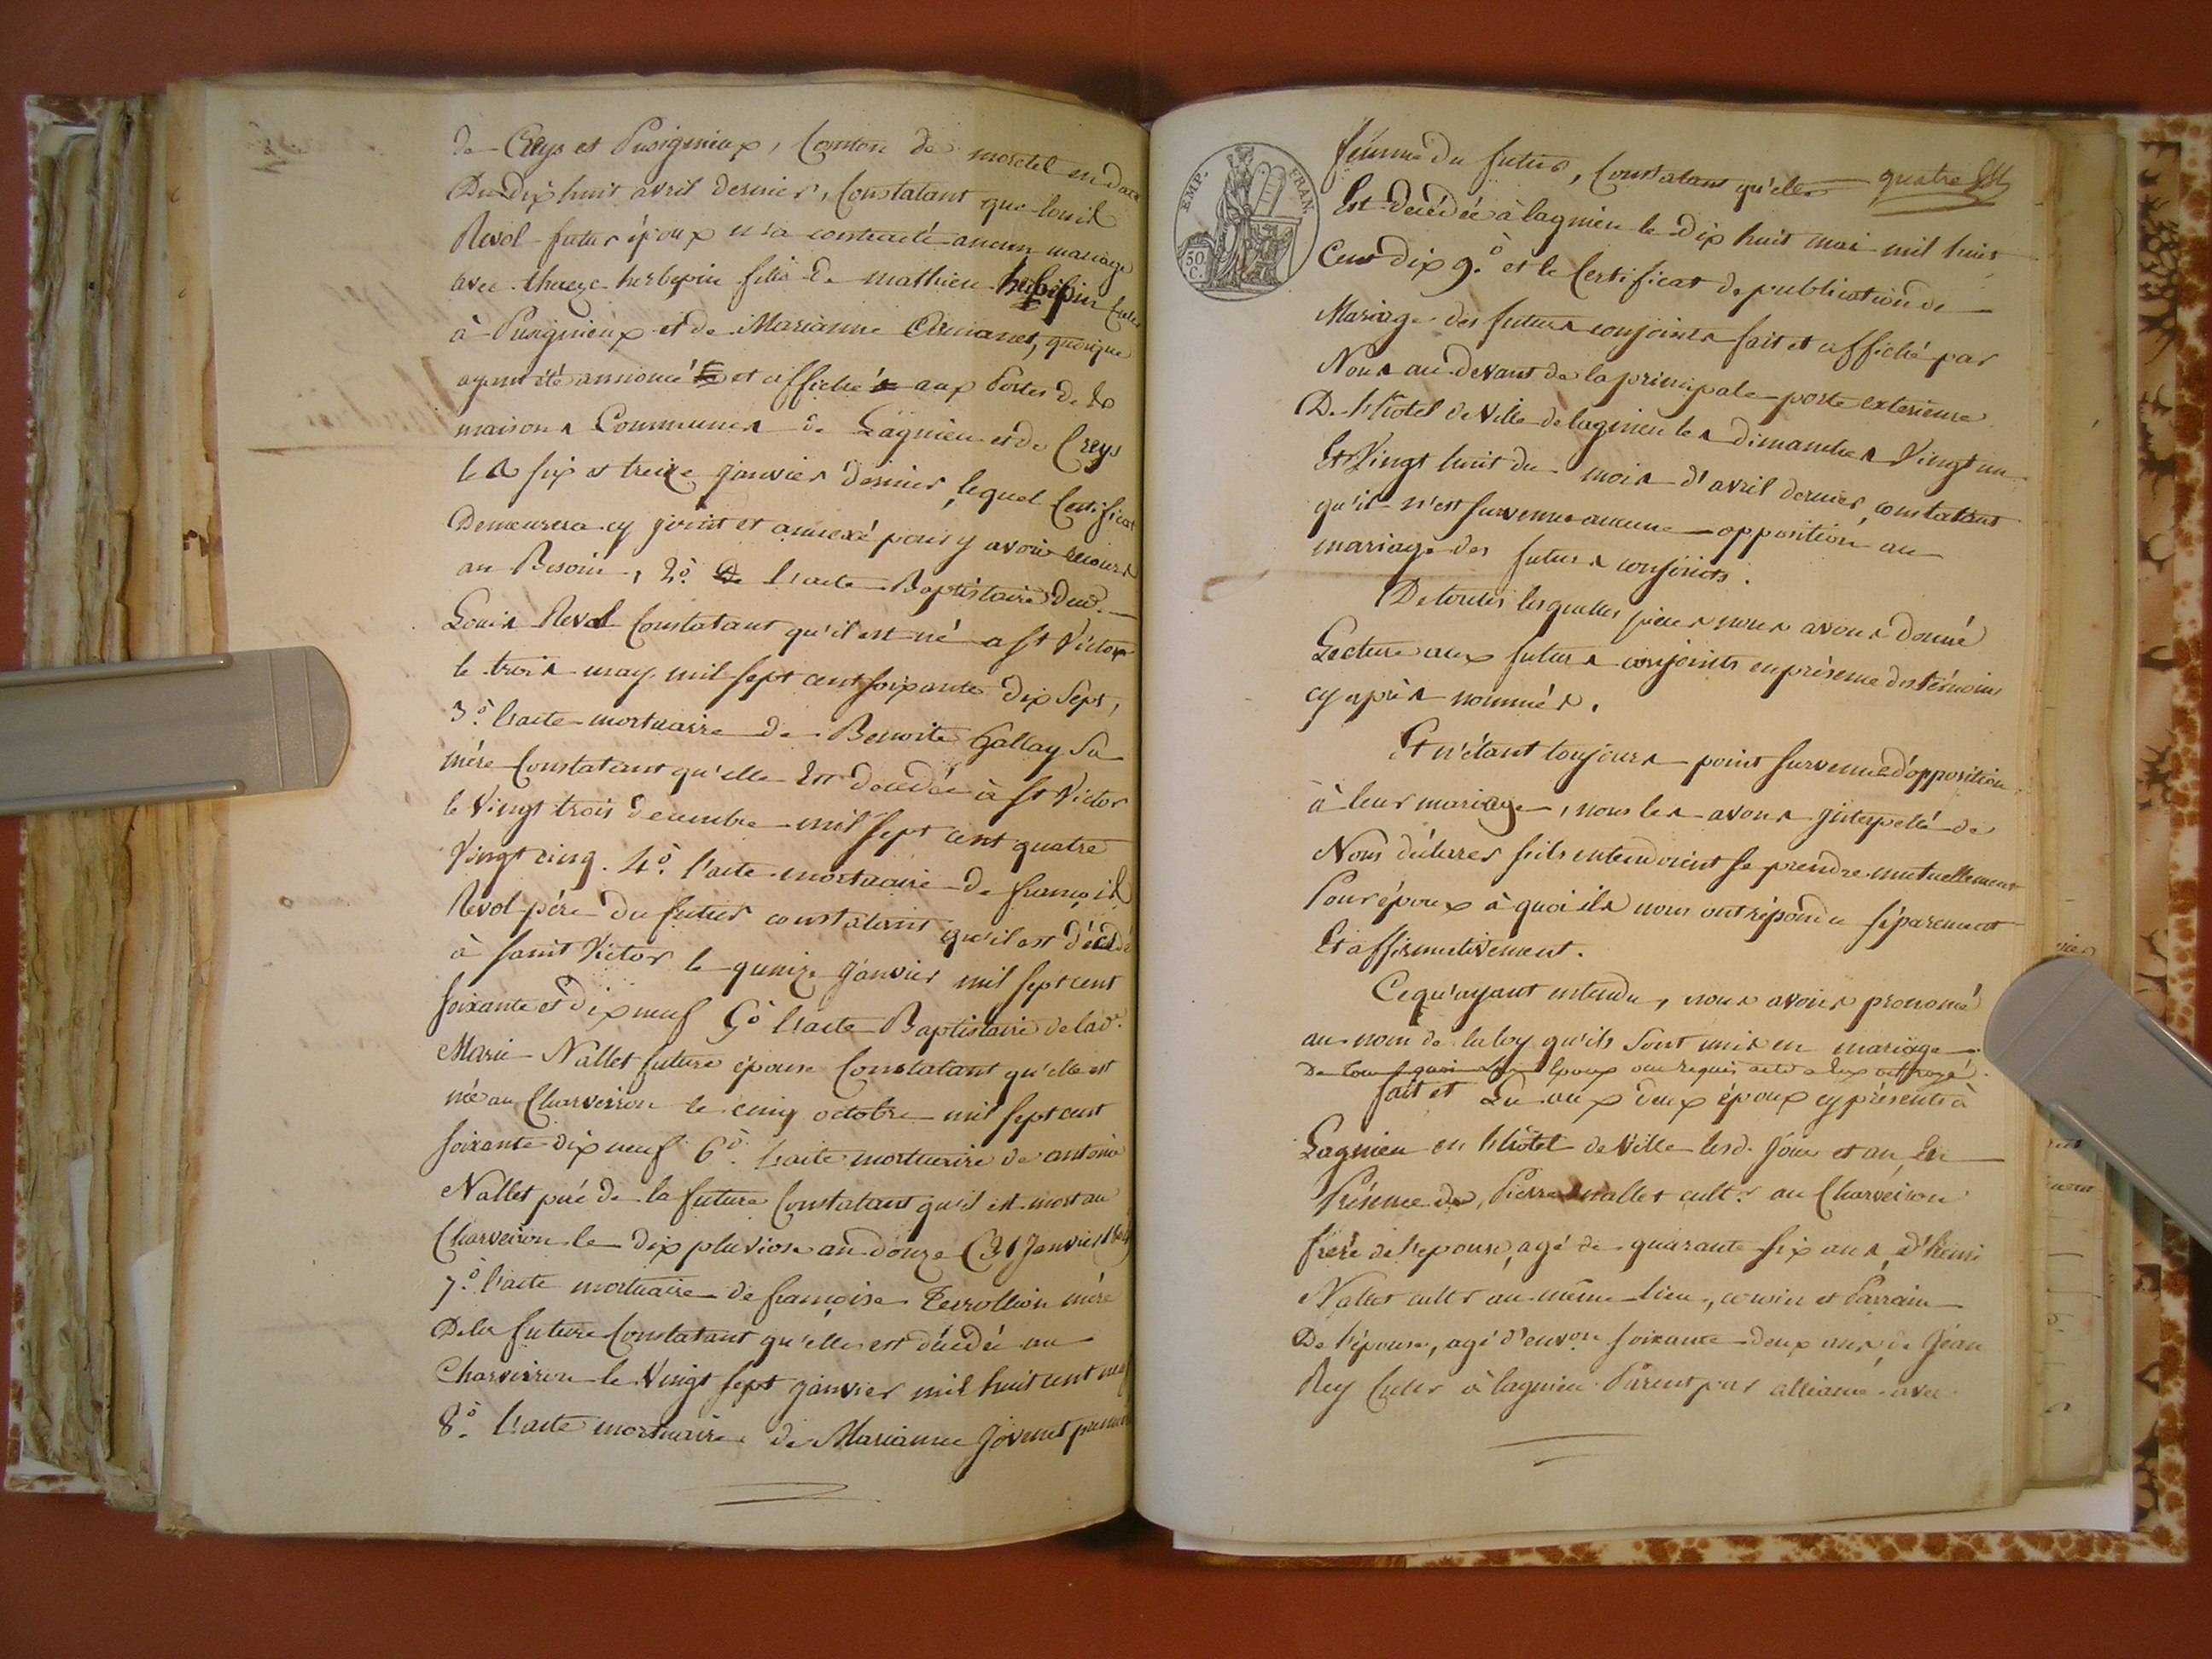 de Creys et Pusignieux, Canton de morestel en date
Du Dix huit avril dernier, Constatant que louis
Revol futur époux n'a contracté aucun mariage
avec therèze herbepin fille de mathieu herbepin Cult.r
à Pusignieux et de Marianne quoique
ayant été annoncé et affiché aux Portes des
maisons Communes de Lagnieu et de Creys
les six et treize janvier dernier, lequel Certificat
Demeurera cy joint et annexé pour y avoir recours
au Besoin, 2.° l'acte Baptistaire dud.
Louis Revol Constatant qu'il est né a St Victor
le trois may mil sept cent soixante dix sept,
3.° l'acte mortuaire de Benoite Gallay sa
mère Constatant qu'elle Est décédée à St Victor
le Vingt trois decembre mil sept cent quatre
Vingt cinq. 4.° l'acte mortuaire de françois
Revol père du futur constatant qu'il est décédé
à saint Victor le quinze janvier mil sept cent
soixante et dix neuf 5.° l'acte Baptistaire de lad.e
Marie Nallet future épouse Constatant qu'elle est
née au Charveiron le cinq octobre mil sept cent
soixante dix neuf 6.° l'acte mortuaire de antoine
Nallet père de la future Constatant qu'il est mort au
Charveiron le dix pluviose an douze (31 Janvier 1804)
7.° l'acte mortuaire de françoise mère
De la future Constatant qu'elle est décédée au
Charveiron le Vingt sept janvier mil huit cent neuf
8.° l'acte mortuaire de Marianne Jovenet premiere
EMP. FRAN.
50 C.
quatre
femme du futur, Constatant qu'elle
Est decédée à lagnieu le dix huit mai mil huit
Cent dix 9.° et le Certificat de publication de
Mariage des futurs conjoints fait et affiché par
Nous au devant de la principale porte exterieure
De l'hôtel de Ville de lagnieu les dimanches Vingt un
Et Vingt huit du mois d'avril dernier, constatant
qu'il n'est survenu aucune opposition au
mariage des futurs conjoints.
De toutes lesquelles pièces nous avons donné
Lecture aux futurs conjoints en présence des témoins
cy après nommés.
Et n'étant toujours point survenu d'opposition
à leur mariage, nous les avons interpellé de
Nous déclarer s'ils entendoient se prendre mutuellement
Pour époux à quoi ils nous ont répondu séparement
Et affirmativement.
Ce qu'ayant entendu, nous avons prononcé
au nom de la loy qu'ils sont unis en mariage
De tout quoi les Epoux ont requis acte a Eux octroyé.
fait et Lu aux deux époux cy présents à
Lagnieu en l'hôtel de Ville lesd. jour et an En
Présence de Pierre nallet cult.r au Charveiron
frère de l'epouse, agé de quarante six ans, d'henri
Nallet cult.r au même lieu, cousin et Parrain
De l'épouse, agé d'env.on soixante deux ans, de Jean
Rey Cult.r à lagnieu Parent par alliance avec